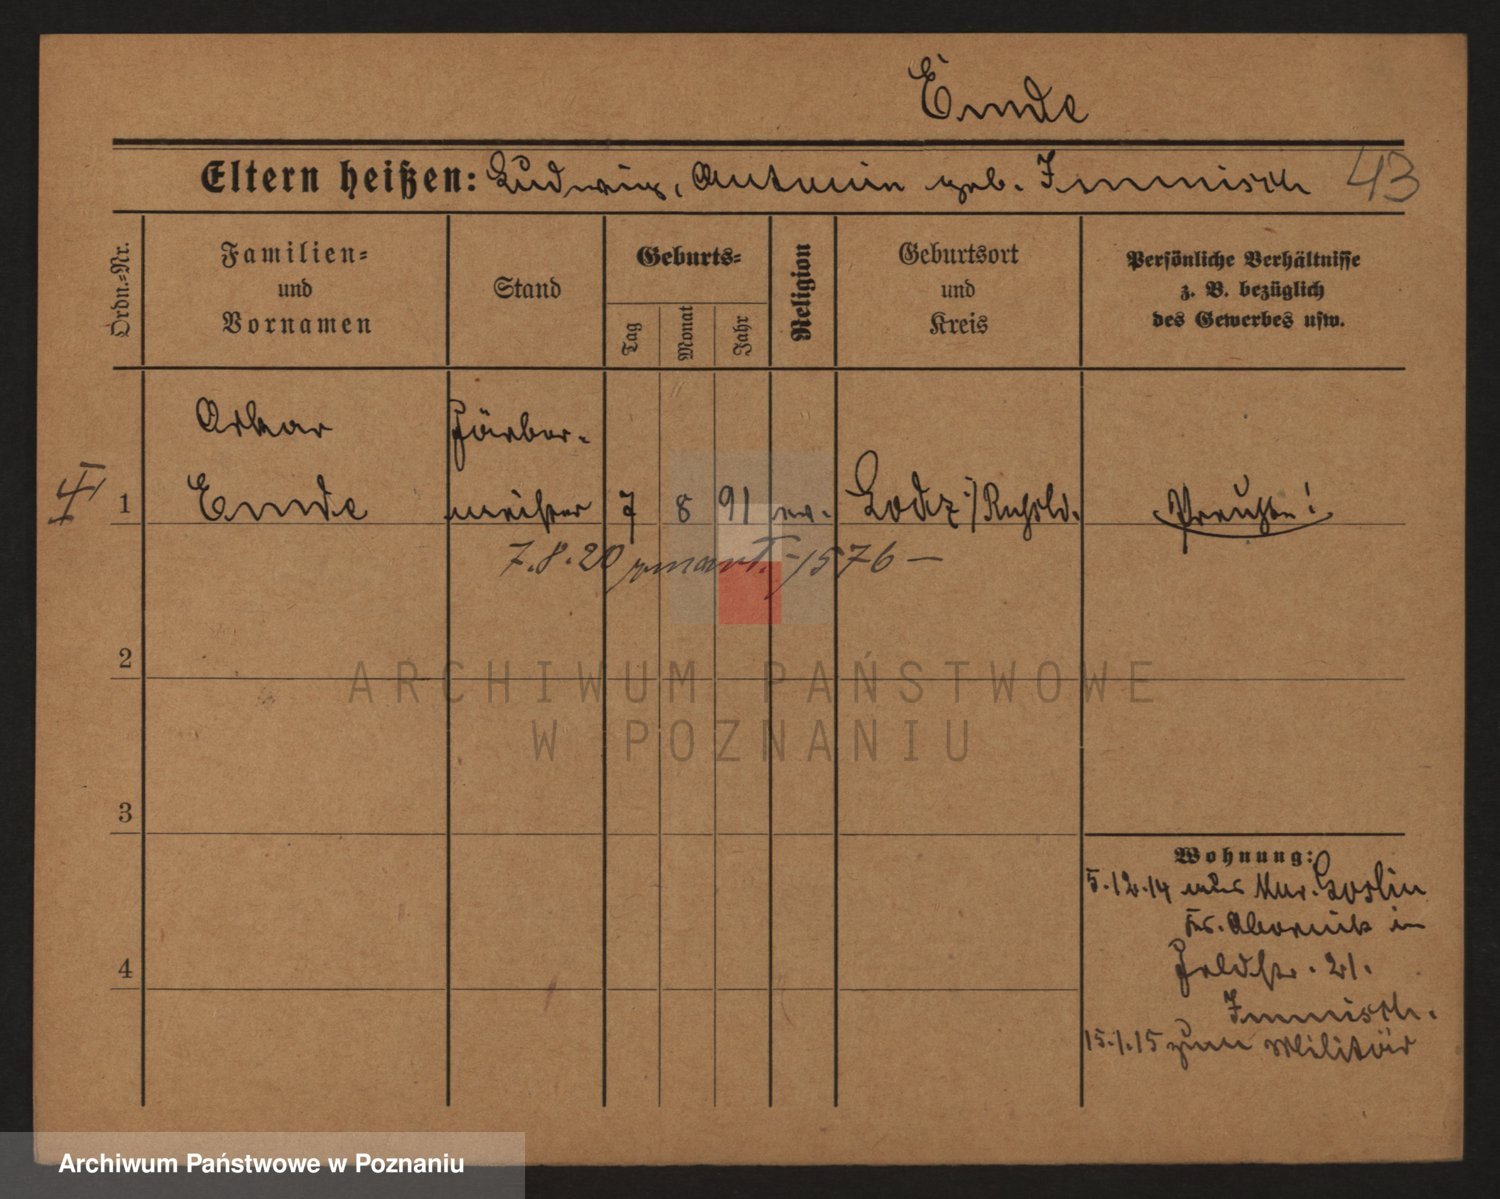 Emde
Eltern heißen: Ludwig, Antonie geb. Immisch 43
Ordn.-Nr.
Familien-
und
Vornamen
Stand
Geburts-
Tag
Monat
Jahr
Religion
Geburtsort
und
Kreis
Persönliche Verhältnisse
z. B. bezüglich
des Gewerbes usw.
Oskar Färber-
I
1 Emde meister 7 8 91 ev. Lodz /Rußld. Preuße!
7.8.20 zmart. - 1576 -
2
ARCHIWUM PAŃSTWOWE
W POZNANIU
3
Wohnung:
5.12.14 aus Mur. Goslin
Kr. Obornik in
4
Feldstr. 21.
Immisch.
15.1.15 zum Militär
Archiwum Państwowe w Poznaniu